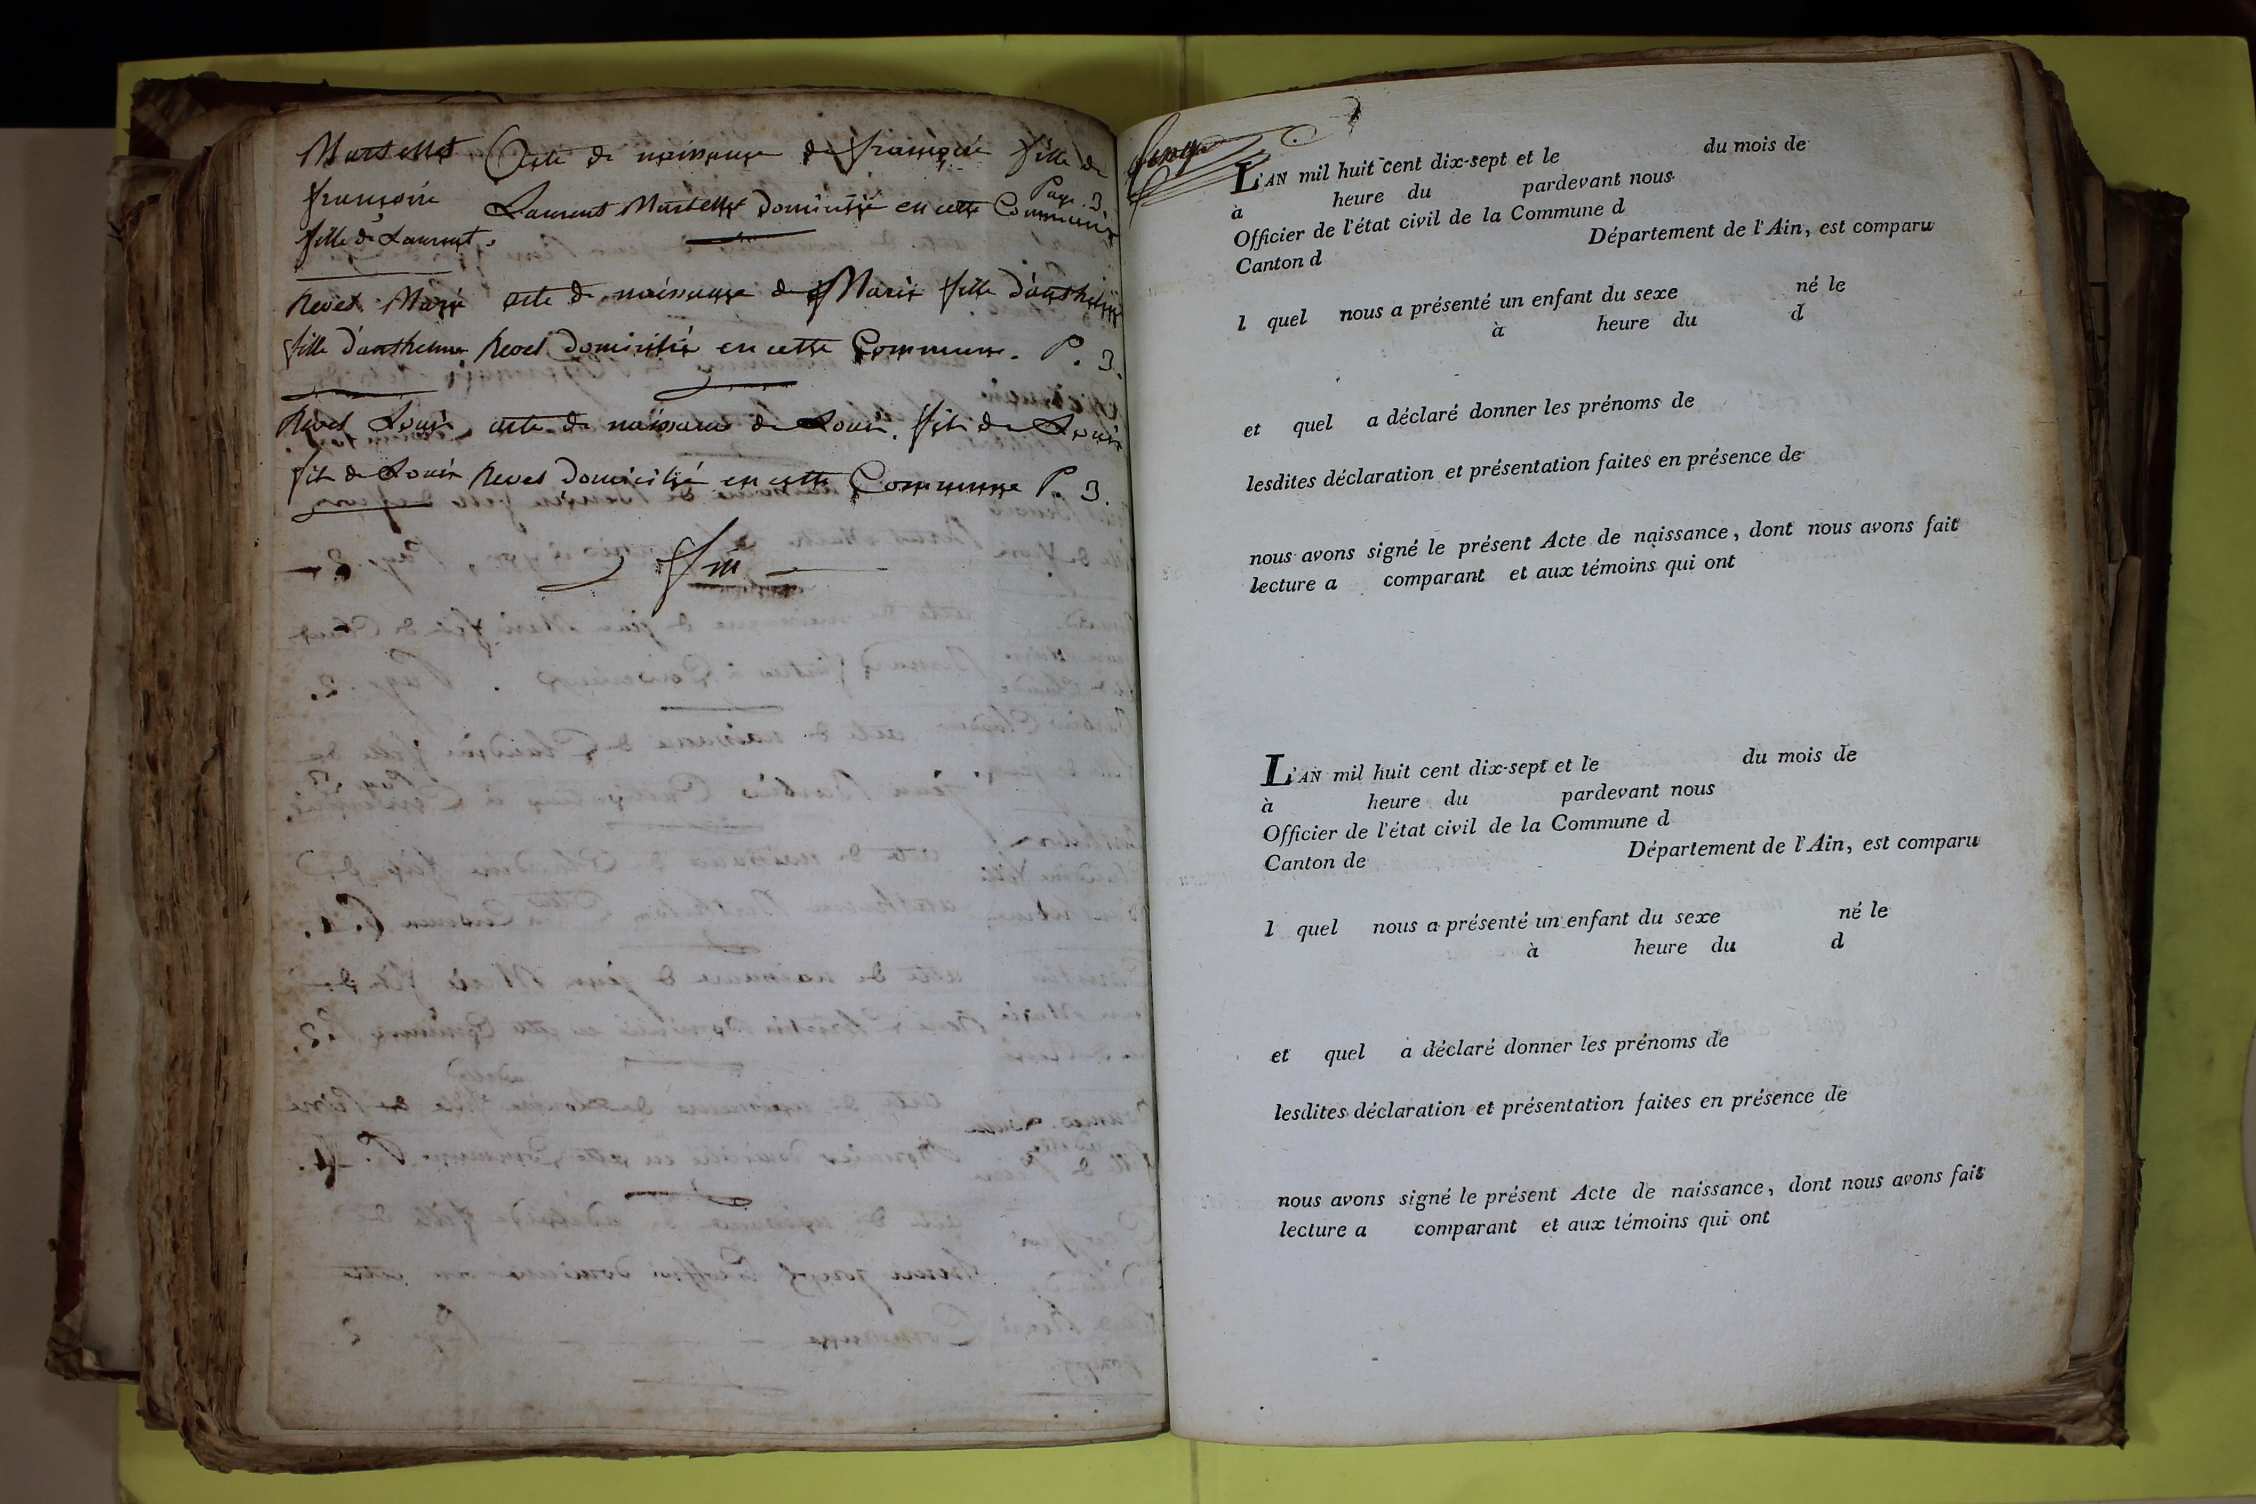 Martellet Acte de naissance de françoise fille de
françoise Laurent Martellet domicilié en cette Commune Page. 3.
fille de Laurent.
Revel Marie acte de naissance de Marie fille d'anthelme
fille d'anthelme Revel domicilié en cette Commune. P. 3.
Revel Louis acte de naissance de Louis fils de Louis
fils de Louis Revel domicilié en cette Commune P. 3.
fin
L'AN mil huit cent dix-sept et le du mois de
à heure du pardevant nous
Officier de l'état civil de la Commune d
Canton d Département de l'Ain, est comparu
l quel nous a présenté un enfant du sexe né le
à heure du d
et quel a déclaré donner les prénoms de
lesdites déclaration et présentation faites en présence de
nous avons signé le présent Acte de naissance, dont nous avons fait
lecture a comparant et aux témoins qui ont
L'AN mil huit cent dix-sept et le du mois de
à heure du pardevant nous
Officier de l'état civil de la Commune d
Canton de Département de l'Ain, est comparu
l quel nous a présenté un enfant du sexe né le
à heure du d
et quel a déclaré donner les prénoms de
lesdites déclaration et présentation faites en présence de
nous avons signé le présent Acte de naissance, dont nous avons fait
lecture a comparant et aux témoins qui ont